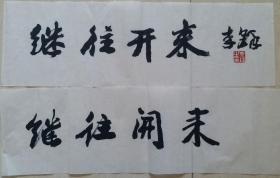 继往开来 李铎
继往開来